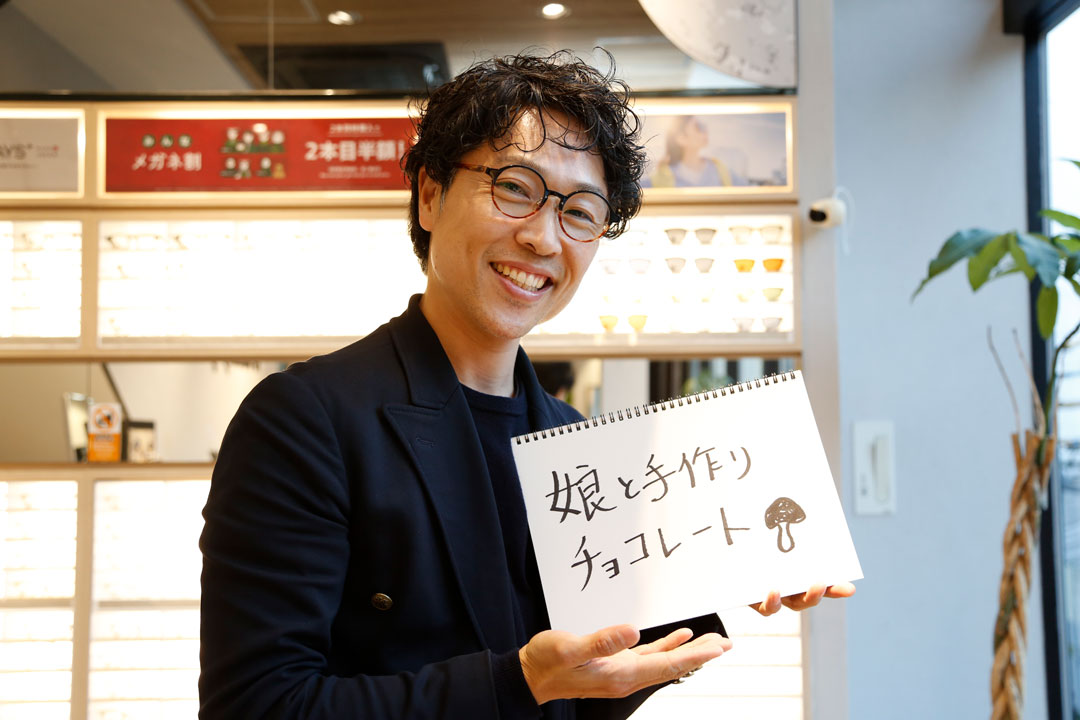 AYS+
みんな
メガネ割
2本目半額!
娘と手作り
チョコレート